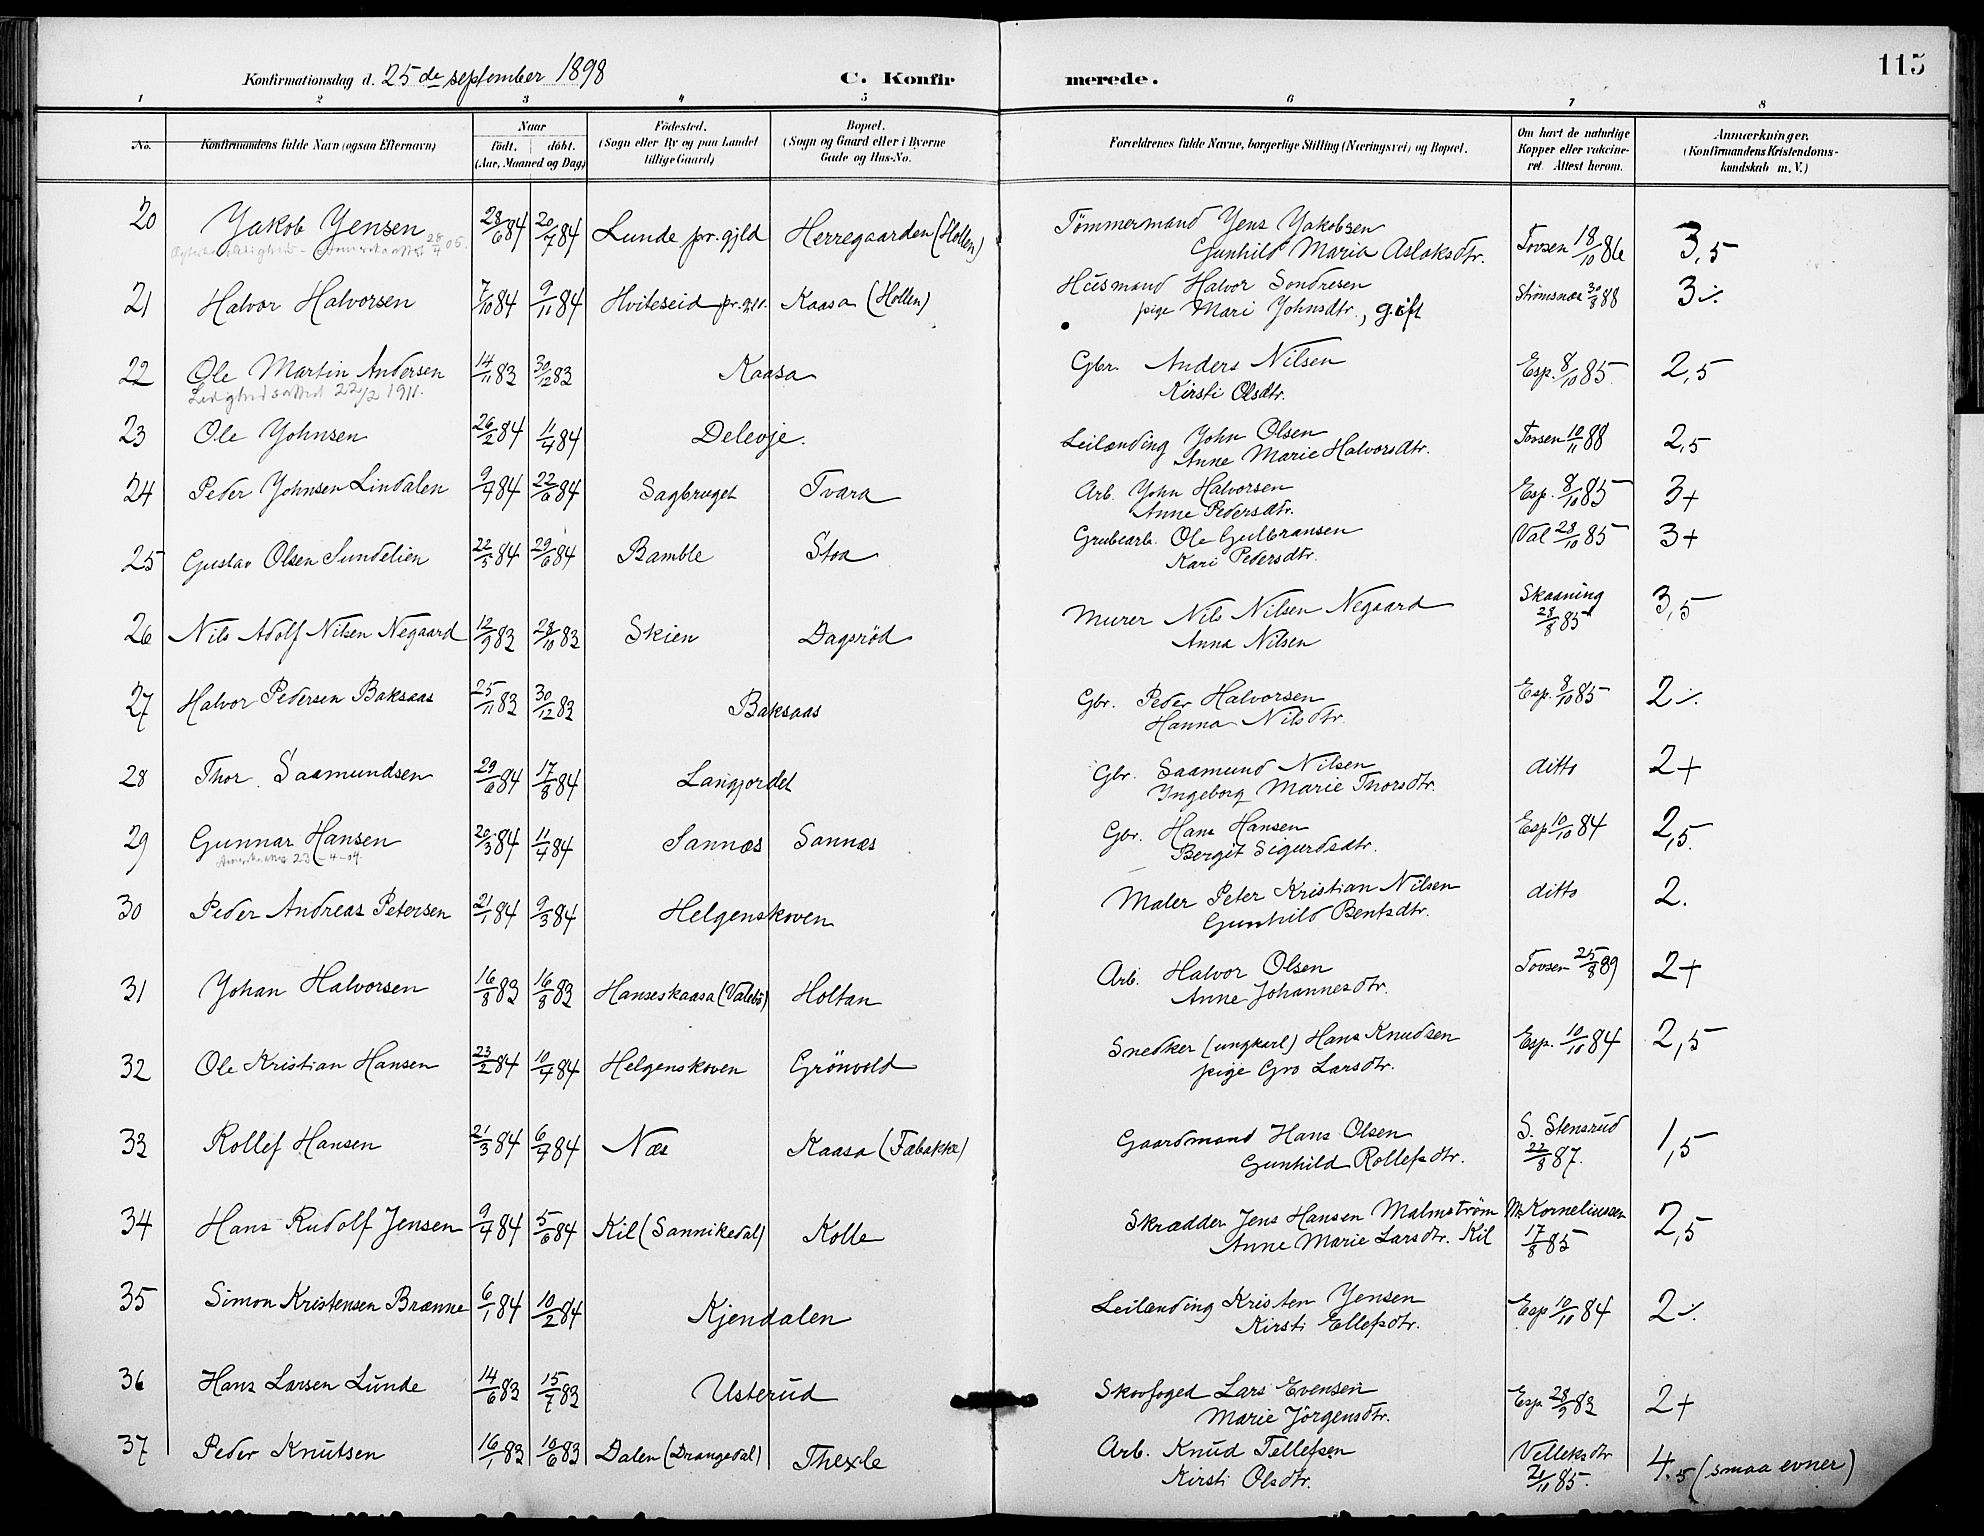 Konfirmationsdag d. 25de september 1898
C. Konfirmerede.
115
1 2 3 4 5 6 7 8
No.
Konfirmandens fulde Navn (ogsaa Efternavn)
Naar
født. døbt.
(Aar, Maaned og Dag)
Fødested.
(Sogn eller By og paa Landet
tillige Gaard)
Bopæl.
(Sogn og Gaard eller i Byerne
Gade og Hus-No.
Forældrenes fulde Navne, borgerlige Stilling (Næringsvei) og Bopæl.
Om havt de naturlige
Kopper eller vakcine-
ret. Attest herom.
Anmærkninger.
(Konfirmandens Kristendoms-
kundskab m. V.)
20 Yakob Yensen 28/6 84 20/7 84 Lunde pr.gjld Herregaarden (Hollen) Tømmermand Yens Yakobsen Tovsen 18/10 86 3,5
28/4 05. Gunhild Maria Aslaksdtr.
21 Halvor Halvorsen 7/10 84 9/11 84 Hviteseid pr.gjl. Kaasa (Hollen) Husmand Halvor Sondresen Strømsnæs 30/8 88 3 ÷
pige Mari Johnsdtr., gift
22 Ole Martin Andersen 14/11 83 30/12 83 Kaasa Gbr. Anders Nilsen Esp. 8/10 85 2,5
Ledighedsattest 22/2 1911. Kirsti Olsdtr.
23 Ole Yohnsen 26/2 84 11/4 84 Delevje. Leilænding John Olsen Tovsen 10/11 88 2,5
Anne Marie Halvorsdtr.
24 Peder Yohnsen Lindalen 9/4 84 22/6 84 Sagbruget Tvara Arb. Yohn Halvorsen Esp. 8/10 85 3+
Anne Pedersdtr.
25 Gustav Olsen Sundelien 22/5 84 29/6 84 Bamble Stoa Grubearb. Ole Gulbransen Val 28/10 85 3+
Kari Pedersdtr.
26 Nils Adolf Nilsen Negaard 12/9 83 28/10 83 Skien Dagsrød Murer Nils Nilsen Negaard Skaaning 28/8 85 3,5
Anna Nilsen
27 Halvor Pedersen Baksaas 25/11 83 30/12 83 Baksaas Gbr. Peder Halvorsen Esp. 8/10 85 2 ÷
Hanna Nilsdtr.
28 Thor Saamundsen 29/6 84 17/8 84 Langjordet Gbr. Saamund Nilsen ditto 2+
Ingeborg Marie Thorsdtr.
29 Gunnar Hansen 20/3 84 11/4 84 Sannæs Sannæs Gbr. Hans Hansen Esp 10/10 84 2,5.
23-4-04. Bergit Sigurdsdtr.
30 Peder Andreas Petersen 21/1 84 9/3 84 Helgenskoven Maler Peter Kristian Nilsen ditto 2.
Gunhild Bentsdtr.
31 Yohan Halvorsen 16/8 83 16/8 83 Hanseskaasa (Valebø) Holtan Arb. Halvor Olsen Tovsen 25/8 89 2+
Anne Johannesdtr.
32 Ole Kristian Hansen 23/2 84 10/4 84 Helgenskoven Grönvold Snedker (ungkarl) Hans Knudsen Esp. 10/10 84 2,5
pige Gro Larsdtr.
33 Rollef Hansen 21/3 84 6/4 84 Næs Kaasa (Fæbakke) Gaardmand Hans Olsen S. Stensrud 22/8 87. 1,5
Gunhild Rollefsdtr.
34 Hans Rudolf Jensen 9/4 84 5/6 84 Kil (Sannikedal) Kolle Skrædder Jens Hansen Malmstrøm M. Korneliussen 17/8 85 2,5
Anne Marie Larsdtr. Kil
35 Simon Kristensen Brænne 6/1 84 10/2 84 Kjendalen Leilænding Kristen Yensen Esp 10/10 84 2 ÷
Kirsti Ellefsdtr.
36 Hans Larsen Lunde 14/6 83 15/7 83 Usterud Skovfoged Lars Evensen Esp 28/9 83 2+
Marie Jörgensdtr.
37 Peder Knutsen 16/1 83 10/6 83 Dalen (Drangedal) Thexle Arb. Knud Tellefsen Velleksdtr 21/11 85. 4.5 (smaa evner)
Kirsti Olsdtr.